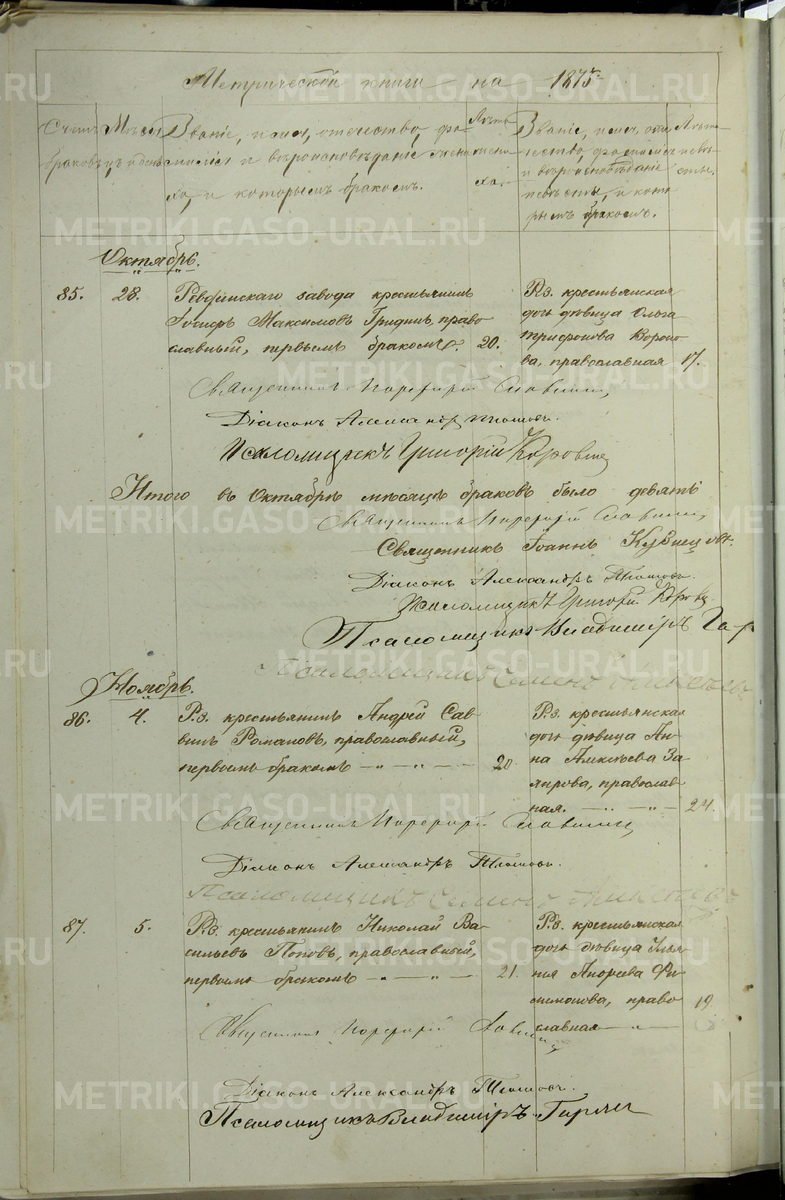 Метрической книги на 1875 г.
Счетъ браковъ
Мѣсяцъ и день
Званіе, имя, отечество, фамилія и вѣроисповѣданіе жениха, и которымъ бракомъ.
Лѣта жениха
Званіе, имя, отечество, фамилія и вѣроисповѣданіе невѣсты, и которымъ бракомъ.
Лѣта невѣсты.
Октябрь.
85. 28. Ревдинскаго завода крестьянинъ
Максимовъ Гридинъ, православный, первымъ бракомъ. 20.
Р. з. крестьянская
дочь дѣвица Ольга
Трифонова Воронова, православная 17.
Священникъ Порфирій Славнинъ
Діаконъ Александръ
Псаломщикъ Григорій Коровинъ
Итого въ Октябрѣ мѣсяцѣ браковъ было девять
Священникъ Порфирій Славнинъ
Священникъ Іоаннъ Кузнецовъ.
Діаконъ Александръ
Псаломщикъ Григорій
Псаломщикъ Владиміръ
Псаломщикъ Семенъ
Ноябрь.
86. 4. Р. з. крестьянинъ Андрей Саввинъ Романовъ, православный,
первымъ бракомъ — „ — „ — 20.
Р. з. крестьянская
дочь дѣвица Анна Алексѣева
православная. — „ — 24.
Священникъ Порфирій Славнинъ
Діаконъ Александръ
Псаломщикъ Семенъ
87. 5. Р. з. крестьянинъ Николай Васильевъ Поповъ, православный,
первымъ бракомъ — „ — „ — 21.
Р. з. крестьянская
дочь дѣвица
Андреева
православная — „ — 19
Священникъ Порфирій Славнинъ
Діаконъ Александръ
Псаломщикъ Владиміръ
METRIKI.GASO-URAL.RU